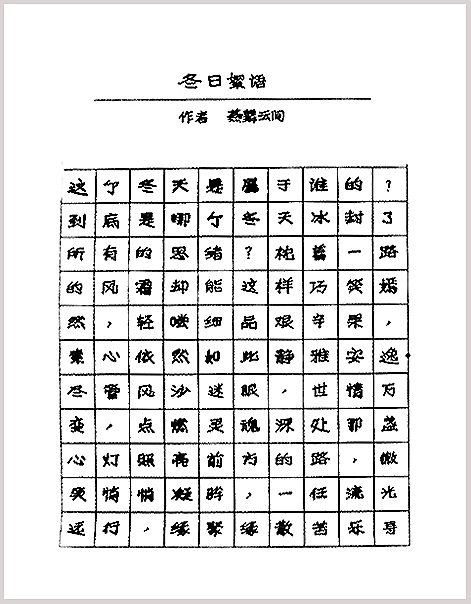 冬日絮语
作者 燕云间
这个冬天是属于谁的？
到底是哪个冬天冰封了
所有的思绪？枕着一路
的风霜却能这样巧笑嫣
然，轻尝细品艰辛果，
素心依然如此静雅安逸
尽管风沙迷眼，世情万
变，点燃灵魂深处那盏
心灯照亮前方的路，微
笑悄悄凝眸，一任流光
远行，缘聚缘散苦乐寻